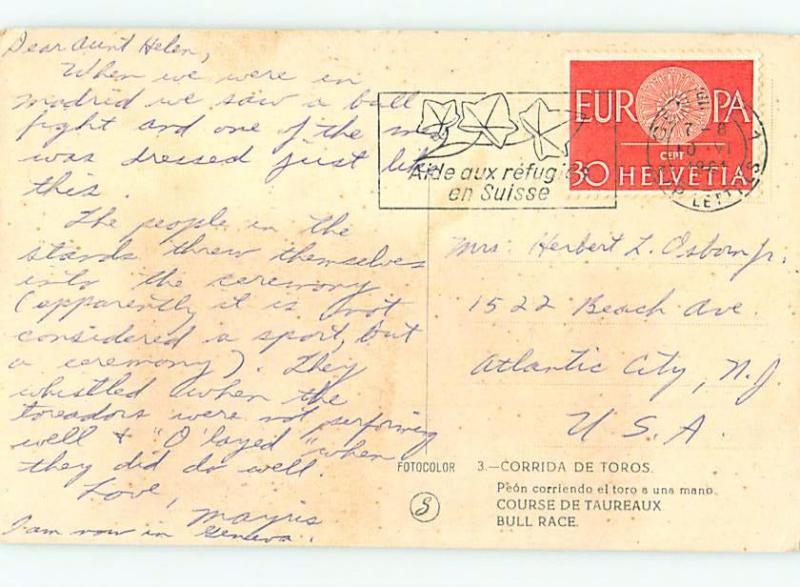 Dear Aunt Helen,
When we were in
madrid we saw a bull
fight and one of the men
was dressed just like
this.
The people in the
stands threw themselves
into the ceremony
(apparently it is not
considered a sport, but
a ceremony). They
whistled when the
toreadors were not performing
well & "O'layed" when
they did do well.
Love,
I am now in
Geneva.
Aide aux réfugiés
en Suisse
EUROPA
CEPT
30 HELVETIA
7-8
10 VI
1961
LETTRES
Mrs. Herbert L. Osborn Jr.
1522 Beach Ave.
Atlantic City, N.J.
U.S.A.
FOTOCOLOR 3.—CORRIDA DE TOROS.
Peón corriendo el toro a una mano.
COURSE DE TAUREAUX
BULL RACE.
S